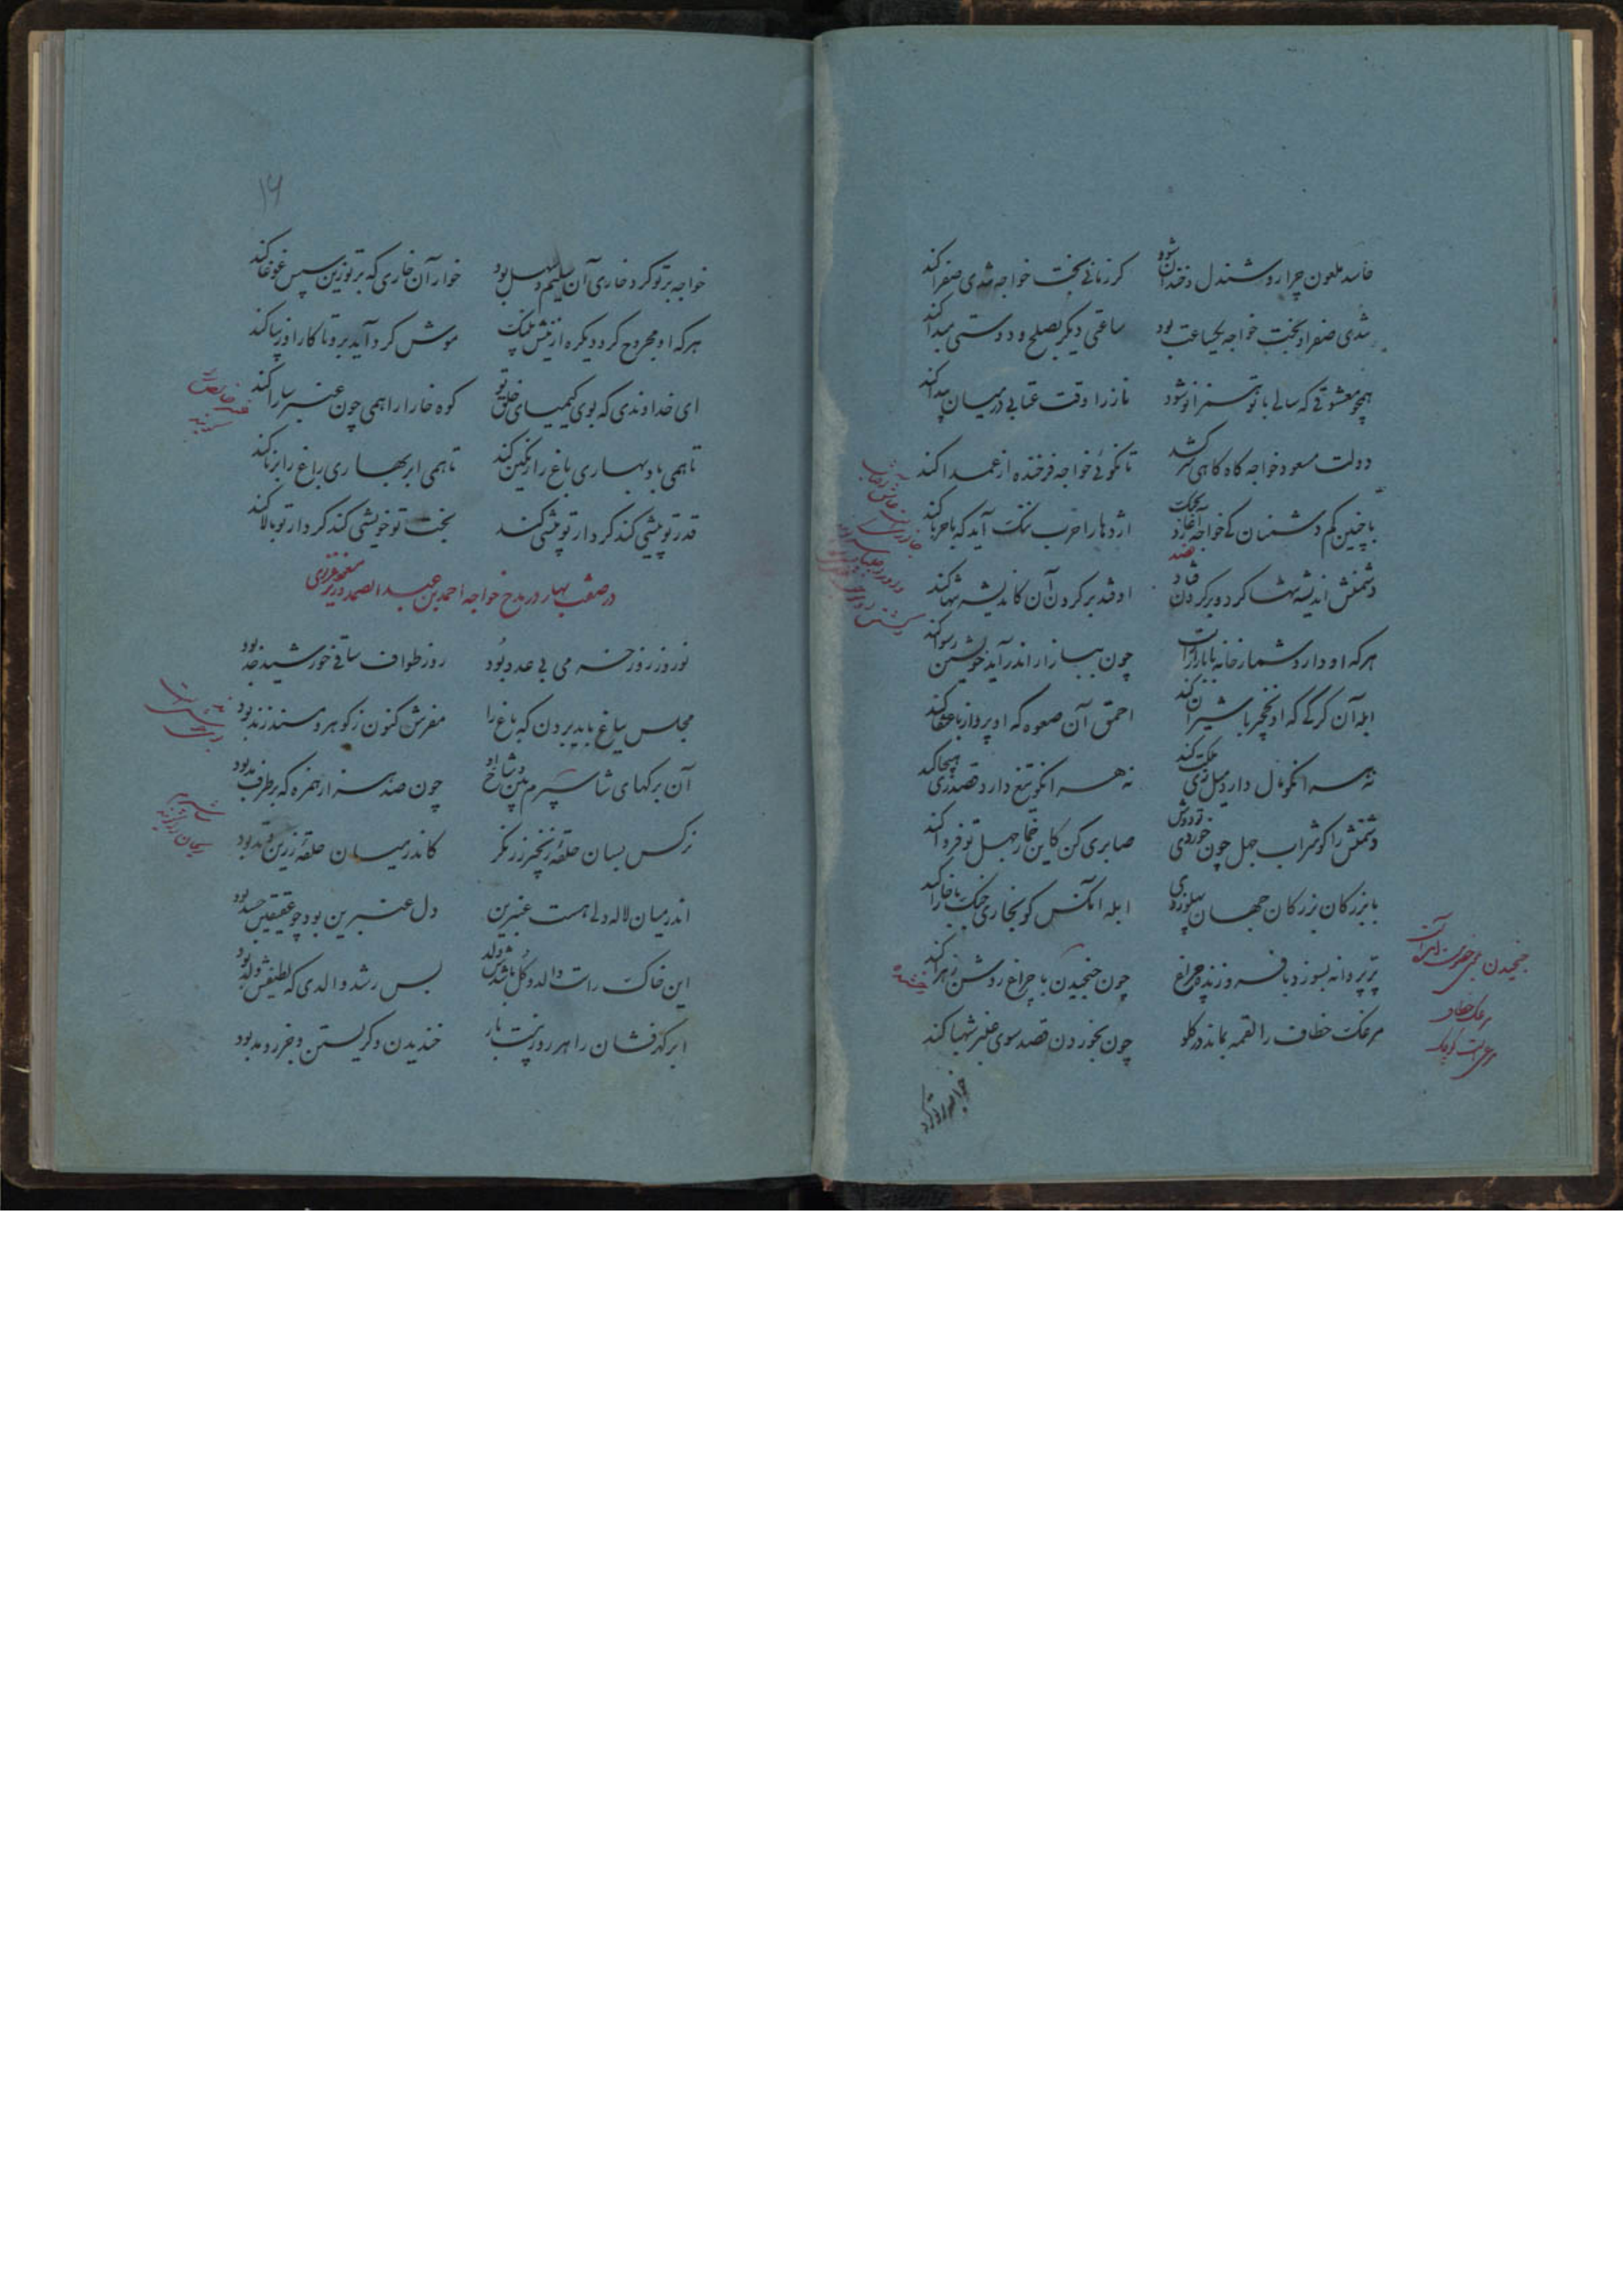 حاسد ملعون چرا روشندل و خندان شود گر زمانی بخت خواجه تندی صفرا کند
تندی صفرا و بخت خواجه یکساعت بود ساعتی دیگر بصلح و دوستی مبدا کند
همچو معشوقی که سالی با تو همزانو شود ناز را وقت عتابی در میان پیدا کند
دولت مسعود خواجه گاه گاهی سرکشد تا نگوئی خواجه فرخنده از عمدا کند
با چنین کم دشمنان کی خواجه آغازد بجنگ اژدها را حرب ننگ آید که با حربا کند
دشمنش اندیشه تنها کرد و بر گردن فتاد اوفتد بر گردن آن کاندیشه تنها کند
هر که او دارد شمار خانه با بازار راست چون ببازار اندر آید خویشتن رسوا کند
ابله آن گرگی که او نخجیر با شیران کند احمق آن صعوه که او پرواز با عنقا کند
نه هر انکو مال دارد میل زی ملکت کند نه هر انکو تیغ دارد قصد زی هیجا کند
دشمنش را گو شراب جهل چون خوردی تو دوش صابری کن کاین خمار جهل تو فردا کند
با بزرگان بزرگان جهان پهلو زدی ابله آنکس کو بخاری جنگ با خارا کند
پر پروانه بسوزد با فروزنده چراغ چون چخیدن با چراغ روشن زهرا کند
مرغک خطاف را لقمه بماند در گلو چون بخوردن قصد سوی عنبر شهبا کند
خواجه بر تو کرد
مرغک خطاف
۱۴
خواجه بر تو کرد خاری آن سلیم و سهل بود خوار آن خاری که بر تو زین سپس غوغا کند
هر که او مجروح گردد یکره از نیش پلنگ موش گرد آید برو تا کار او زیبا کند
ای خداوندی که بوی کیمیای خلق تو کوه خارا را همی چون عنبر سارا کند
تا همی باد بهاری باغ را رنگین کند تا همی ابر بهاری راغ را برنا کند
قدر تو پیشی کند کردار تو پیشی کند بخت تو خویشی کند گردار تو بالا کند
در صفت بهار در مدح خواجه احمد بن عبدالصمد وزیر
نوروز روز خرمی بی عدد بود روز طواف ساقی خورشید خد بود
مجلس بباغ باید بردن که باغ را مفرش کنون ز گوهر و مسند ز ند بود
آن برگهای شاسپرم بین و شاخ او چون صد هزار همزه که بر طرف مد بود
نرگس بسان حلقه زنجیر زر نگر کاندر میان حلقه زرین وتد بود
اندر میان لاله دلی هست عنبرین دل عنبرین بود چو عقیقین جسد بود
این خاک راست والد و گل باشدش ولد بس رشد والدی که لطیفش ولد بود
ابر گهر فشان را هر روز بیست بار خندیدن و گریستن و جزر و مد بود